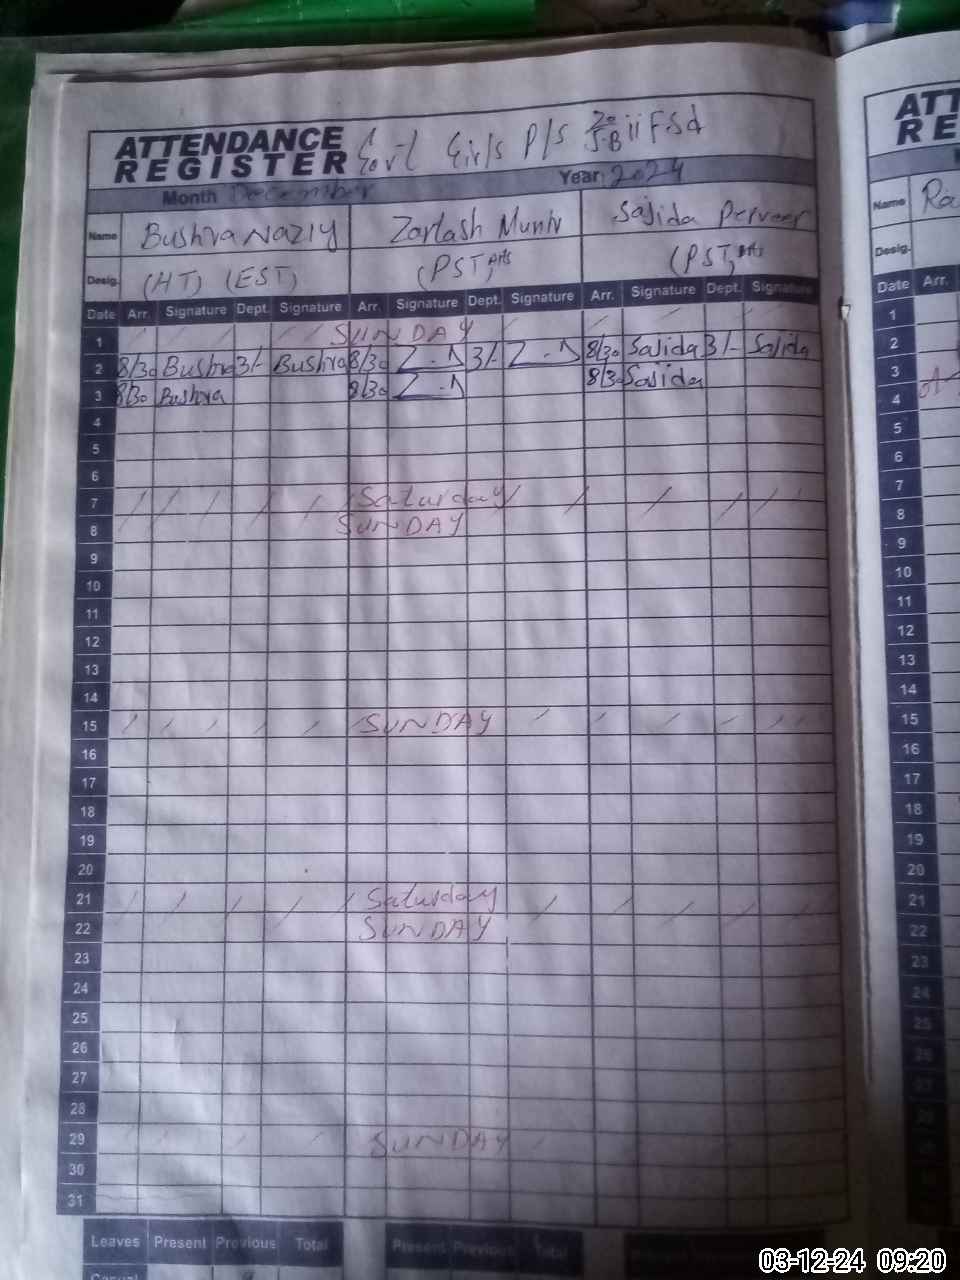 ATTENDANCE REGISTER Govt Girls P/S 20/J-B ii FSd
Month December Year: 2024
Name Bushra Naziy Zarlash Munir Sajida Perveen
Desig. (HT) (EST) (PST, Arts (PST, Arts
Date Arr. Signature Dept. Signature Arr. Signature Dept. Signature Arr. Signature Dept. Signature
1 SUNDAY
2 8/30 Bushra 3/- Bushra 8/30 Z-A 3/- Z-A 8/30 Sajida 3/- Sajida
3 8/30 Bushra 8/30 Z-A 8/30 Sajida
4
5
6
7 Saturday
8 SUNDAY
9
10
11
12
13
14
15 SUNDAY
16
17
18
19
20
21 Saturday
22 SUNDAY
23
24
25
26
27
28
29 SUNDAY
30
31
Leaves Present Previous Total Present Previous Total
Casual
ATT
RE
Name Ra
Desig.
Date Arr.
1
2
3
4
5
6
7
8
9
10
11
12
13
14
15
16
17
18
19
20
21
22
23
24
25
26
03-12-24 09:20